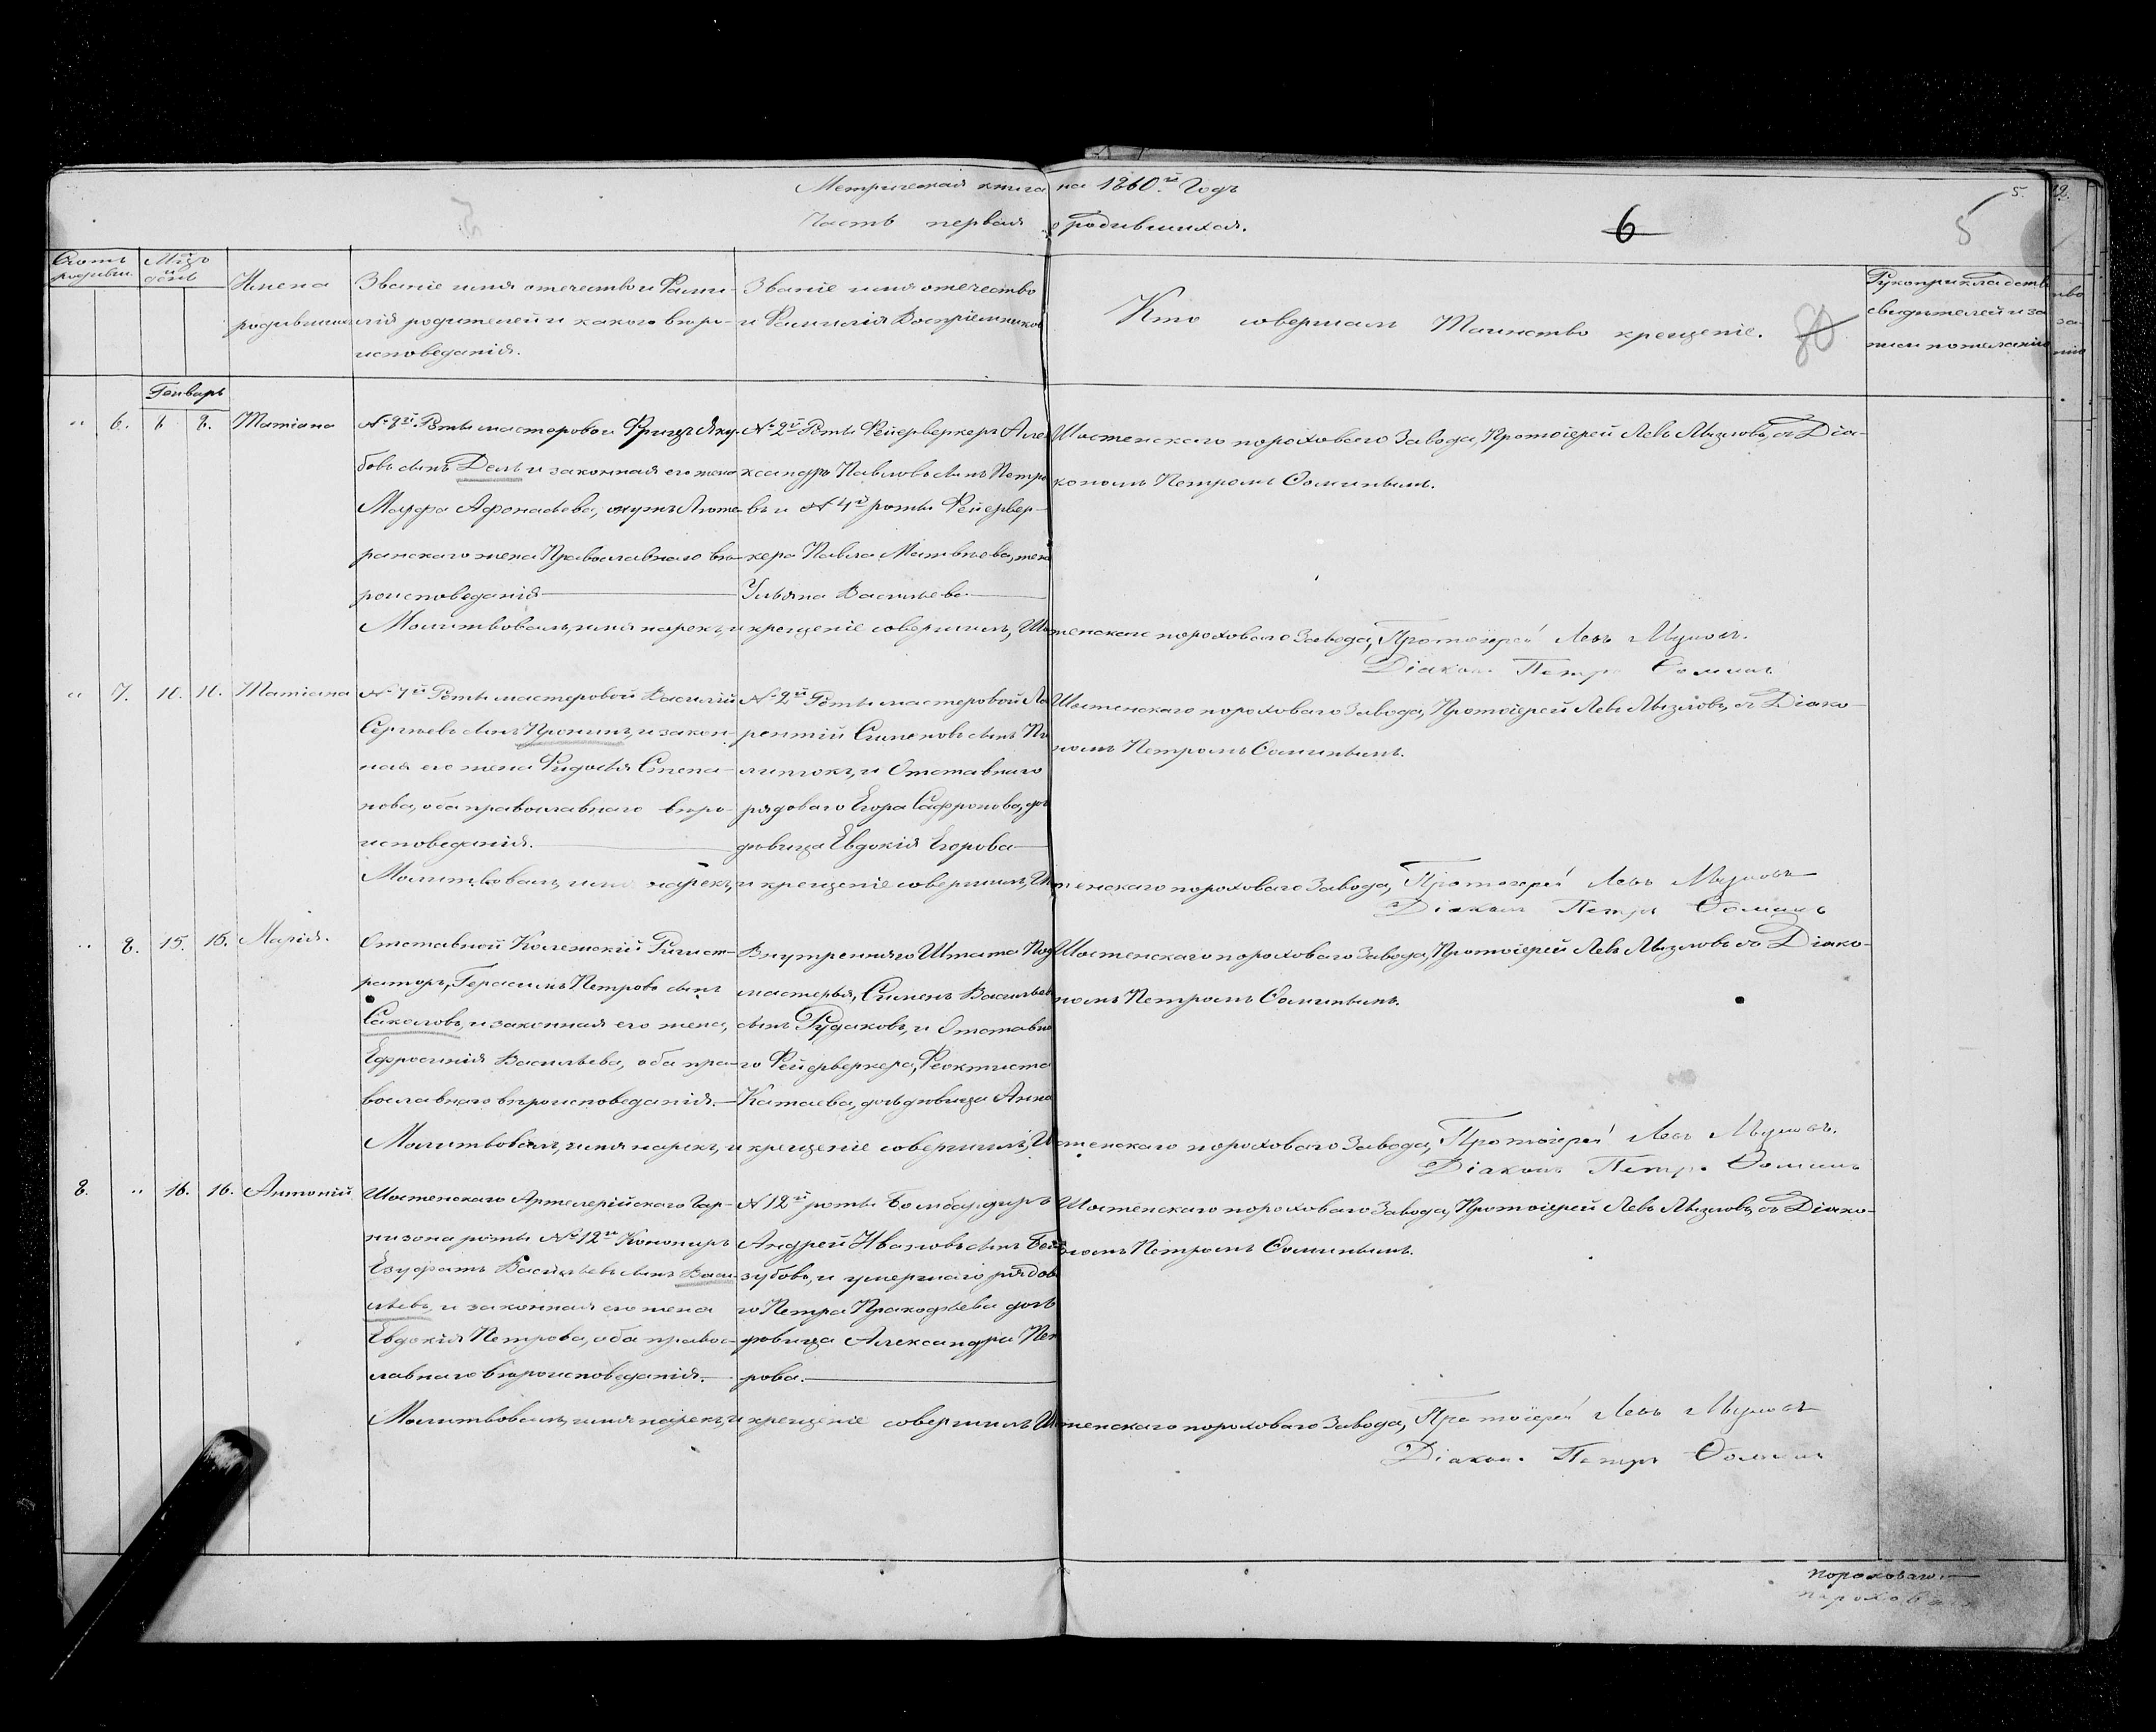 Метрическая книга на 1860.й Годъ
5.
12.
Часть первая о родившихся.
6
5
Счотъ родивш.
Мцъ и день
Имена родившихся
Званіе имя отечество и Фами-
лія родителей и какого вѣро-
исповеданія.
Званіе имя отечество
и Фамилія Воспріемников
Кто совершалъ Таинство крещеніе.
80
Рукоприкладств
свидетелей и за
писи по желанію
Генварь
" 6. 6 8. Татіана
№ 8й Роты мастеровои Фрицъ Яку-
бовъ сынъ Дель и законная его жена
Марфа Афонасьева, мужъ Люте-
ранскаго жена Православнаго вѣ-
роисповеданія
№ 2й Роты Фейерверкеръ Але
ксандръ Павловъ сынъ Петро
въ и № 4й роты Фейервер-
кера Павла Матвѣева, жена
Ульяна Васильева
Шостенскаго пороховаго Завода, Протоіерей Левъ Мызловъ, съ Діа-
кономъ Петромъ Ѳоминымъ.
Молитвовалъ, имя нарекъ, и крещеніе совершилъ, Шостенскаго пороховаго Завода, Протоіерей Левъ Мызловъ.
Діакон. Петръ Ѳоминъ
" 7. 10. 10. Татіана
Роты мастеровой Василій
Сергѣевъ сынъ Пронинъ, и закон-
ная его жена Фидосья Степа-
нова, оба православнаго вѣро-
исповеданія.
№ 2й Роты мастеровой Ла
рентій Симеоновъ сынъ
и Отставнаго
рядоваго Егора Сафронова, до
дѣвица Евдокія Егорова
Шостенскаго пороховаго Завода, Протоіерей Левъ Мызловъ, съ Діако-
номъ Петромъ Ѳоминымъ.
Молитвовалъ, имя нарекъ, и крещеніе совершилъ, Шостенскаго пороховаго Завода, Протоіерей Левъ Мызловъ
Діаконъ Петръ Ѳоминъ
" 8. 15. 16. Марія.
Отставной Колежскій Регист-
раторъ, Герасимъ Петровъ сынъ
Сакаловъ, и законная его жена,
Ефросинія Васильева, оба пра-
вославнаго вѣроисповеданія.
Внутренняго Штата Под
мастерья, Сименъ Васильев
сынъ Рудаковъ, и Отставно
го Фейерверкера, Феоктиста
Катаева, дочь дѣвица Анна
Шостенскаго пороховаго Завода, Протоіерей Левъ Мызловъ съ Діако-
номъ Петромъ Ѳоминымъ.
Молитвовалъ, имя нарекъ, и крещеніе совершилъ, Шостенскаго пороховаго Завода, Протоіерей Левъ Мызловъ.
Діаконъ Петръ Ѳоминъ
8. " 16. 16. Антоній
Шостенскаго Артелерійскаго Гар-
низона роты № 12й Конониръ
Васильевъ сынъ Васи-
льевъ, и законная его жена
Евдокія Петрова, оба правос-
лавнаго вѣроисповеданія.
№ 12й роты Бомбардиръ
Андрей Ивановъ сынъ Без
зубовъ, и умершаго рядова
го Петра Пракофьева дочь
дѣвица Александра Пет
рова.
Шостенскаго пороховаго Завода, Протоіерей Левъ Мызловъ, съ Діако-
номъ Петромъ Ѳоминымъ.
Молитвовалъ, имя нарекъ, и крещеніе совершилъ Шостенскаго пороховаго Завода, Протоіерей Левъ Мызловъ
Діакон. Петръ Ѳоминъ
пороховаго.
пороховаго